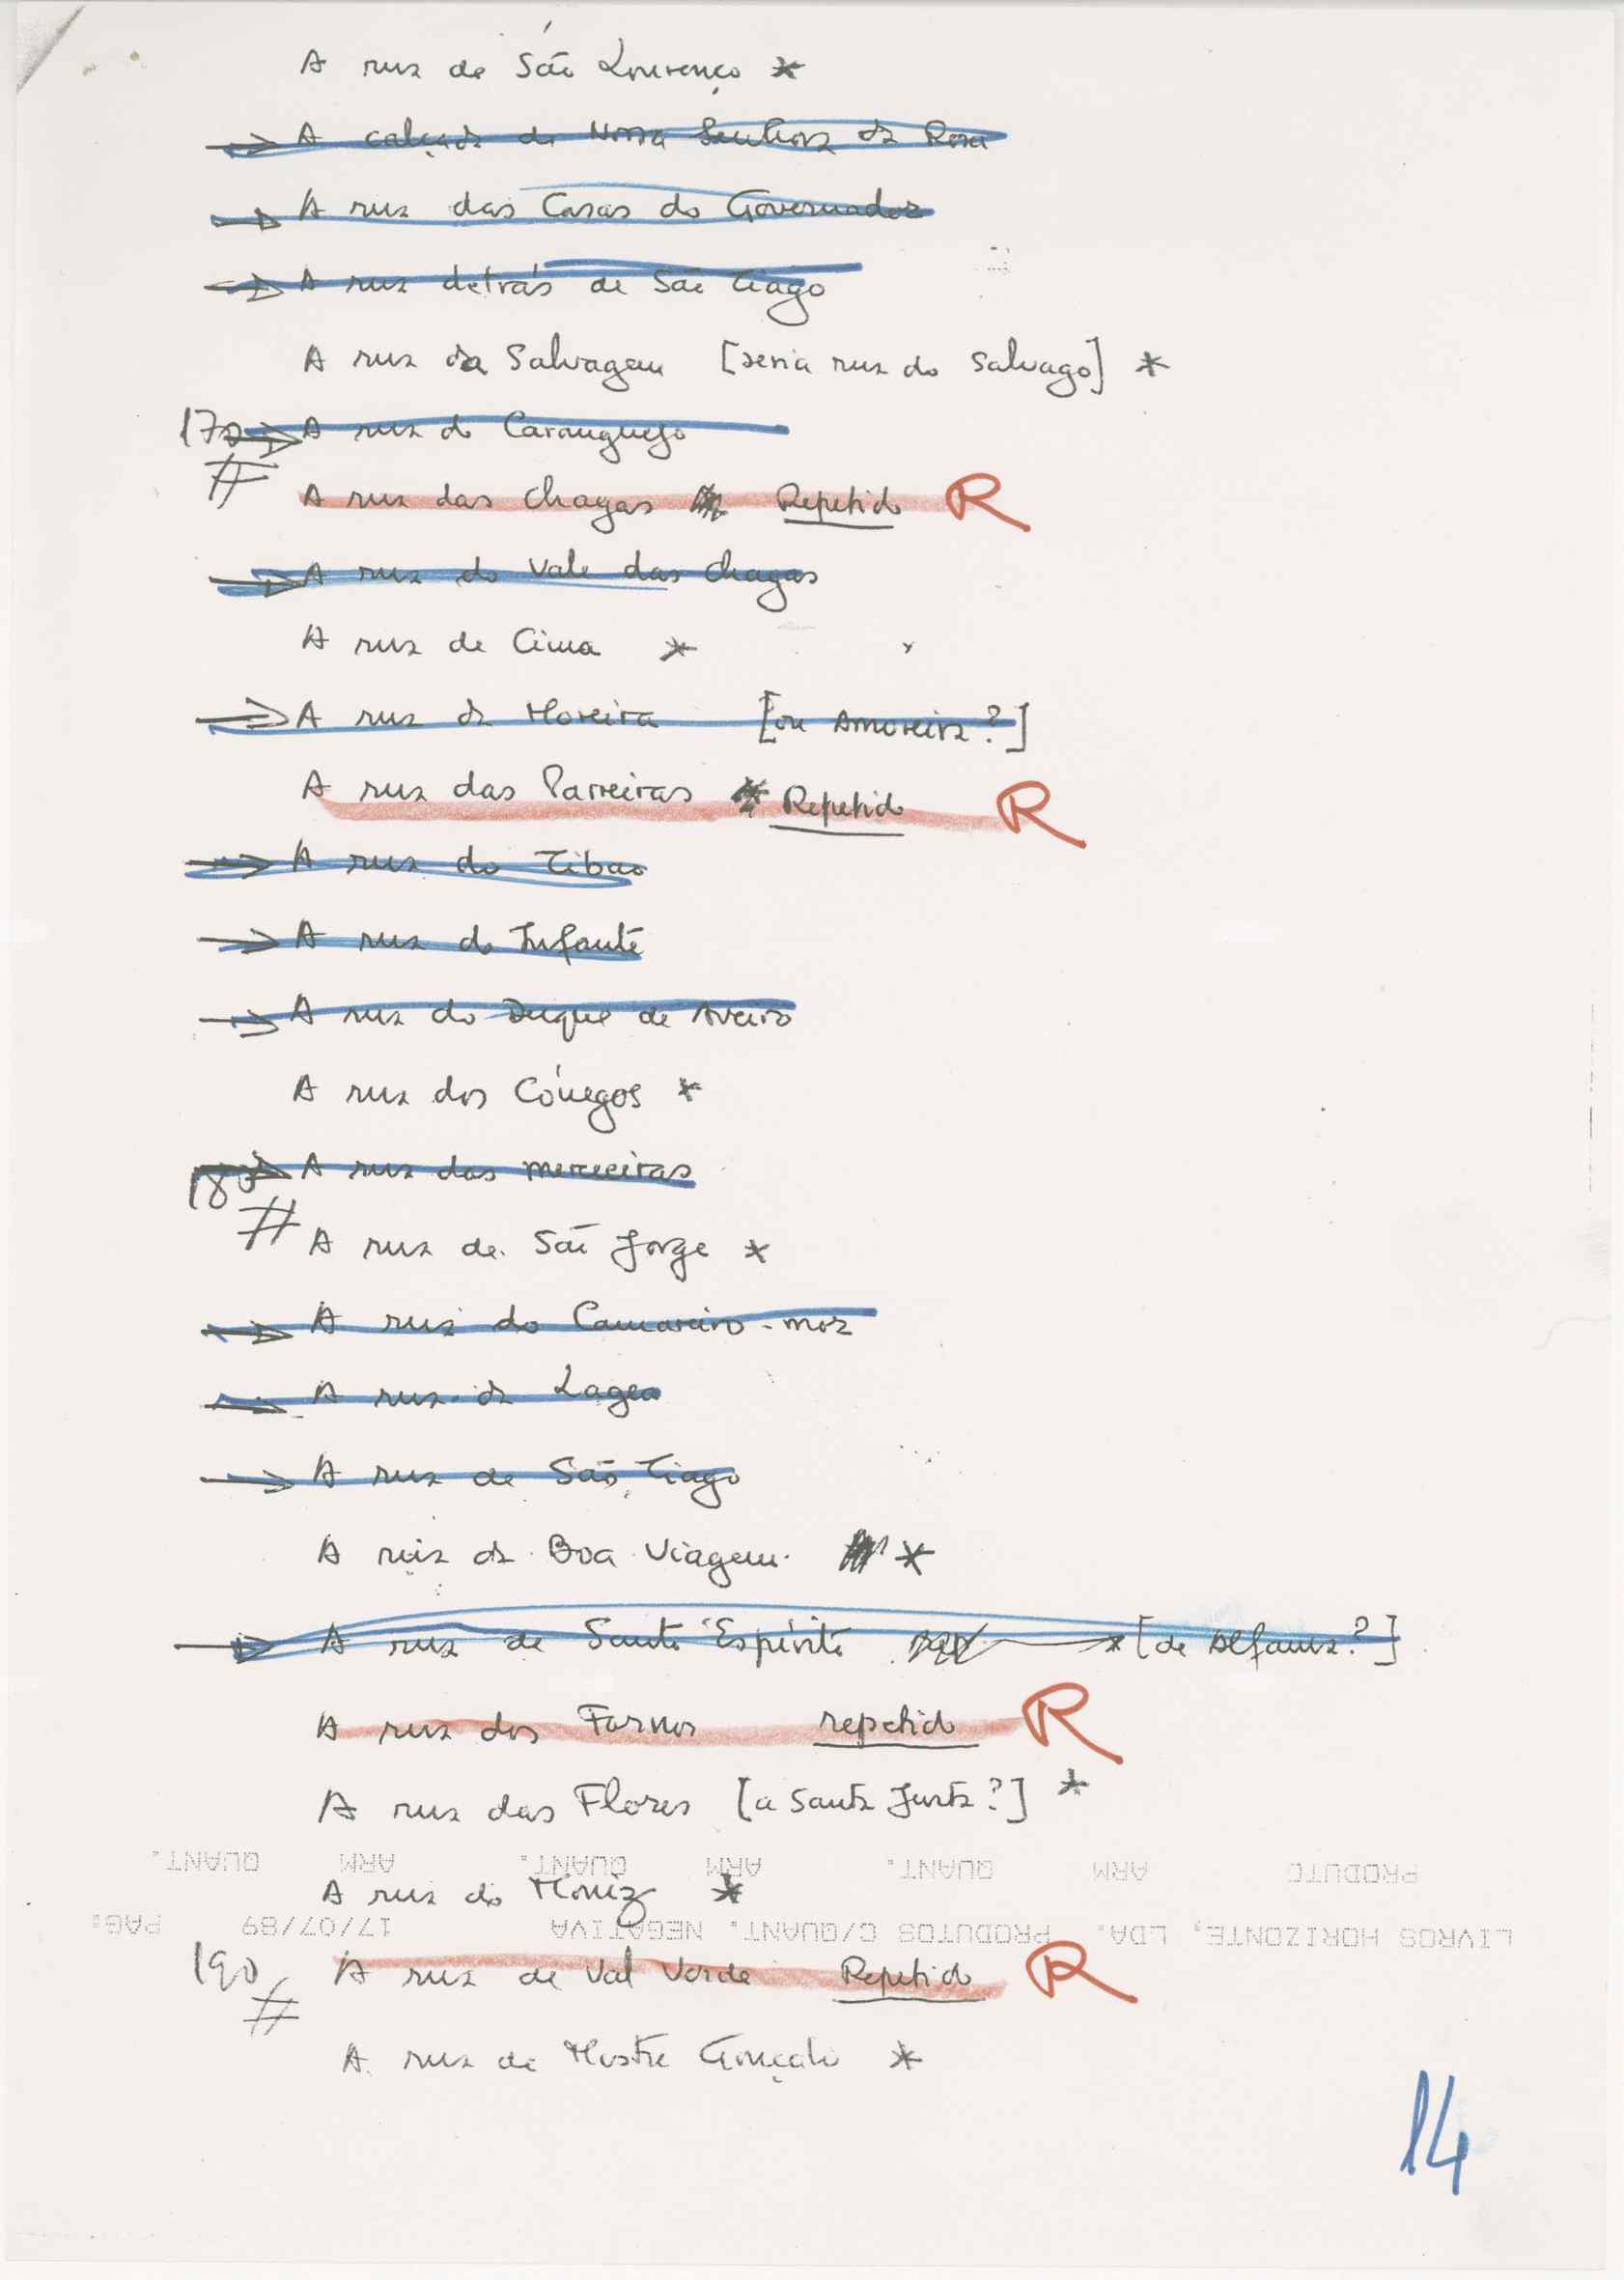 A rua de São Lourenço *
⇒ A calçada de Nossa Senhora da Rosa
⇒ A rua das Casas do Governador
⇒ A rua detrás de São Tiago
A rua da Salvagem [seria rua do Salvago] *
170 ⇒ A rua do Caranguejo
# A rua das Chagas Repetido R
⇒ A rua do Vale das Chagas
A rua de Cima *
⇒ A rua da Moreira [ou Amoreira?]
A rua das Parreiras * Repetido R
⇒ A rua do Tibao
⇒ A rua do Infante
⇒ A rua do Duque de Aveiro
A rua dos Cónegos *
180 ⇒ A rua das merceeiras
# A rua de São Jorge *
⇒ A rua do Camareiro-mor
⇒ A rua da Lagea
⇒ A rua de São Tiago
A rua da Boa Viagem *
⇒ A rua de Santo Espírito [de Alfama?]
A rua dos Fornos repetido R
A rua das Flores [a Santa Justa?] *
PRODUTO ARM QUANT. ARM QUANT. ARM QUANT.
A rua do Moniz *
LIVROS HORIZONTE, LDA. PRODUTOS C/QUANT. NEGATIVA 17/07/89 PAG:
190 # A rua de Val Verde Repetido R
A rua de Mestre Gonçalo *
14